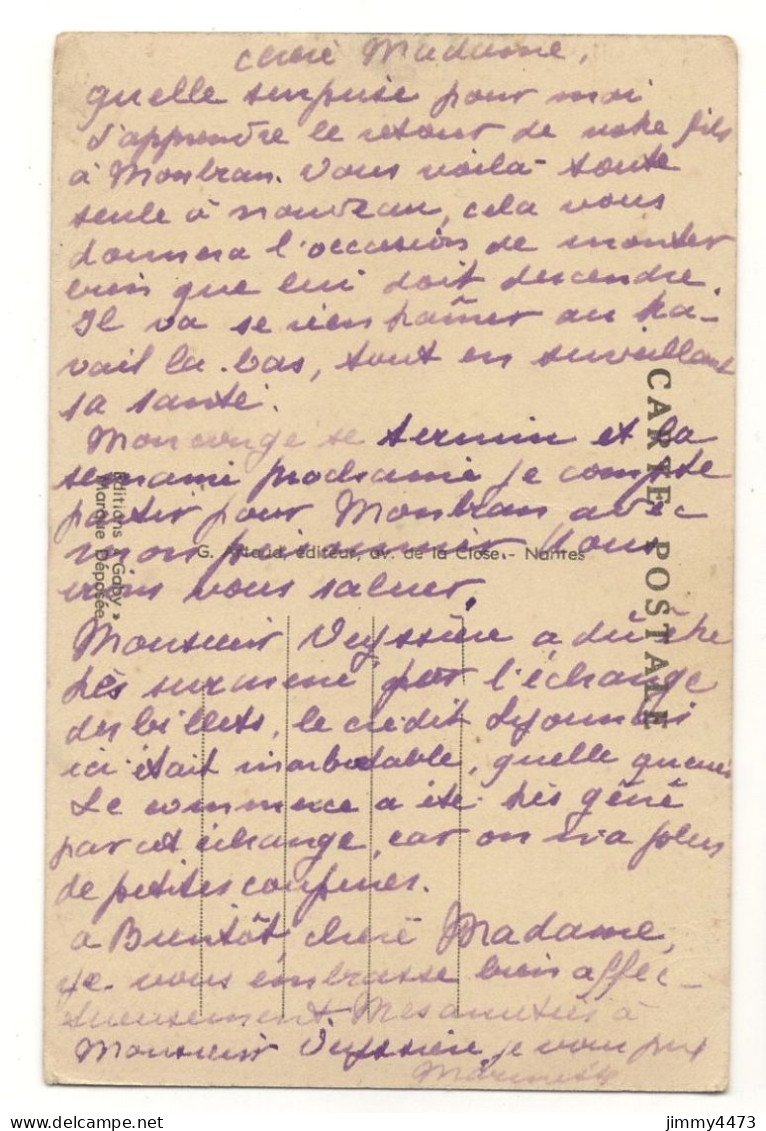 chère Madame,
quelle surprise pour moi
d'apprendre le retour de votre fils
à Montran. Vous voilà toute
seule à nouveau, cela vous
donnera l'occasion de monter
bien que lui doit descendre.
Il va se réentraîner au tra-
vail là-bas, tout en surveillant
sa santé.
Mon congé se termine et la
semaine prochaine je compte
partir pour Montran avec
mon prisonnier. Nous
irons vous saluer.
Monsieur Veyssière a dû être
très surmené par l'échange
des billets, le crédit Lyonnais
ici était inabordable, quelle queue
Le commerce a été très gêné
par cet échange, car on n'a plus
de petites coupures.
à Bientôt, chère Madame,
je vous embrasse bien affec-
tueusement. Mes amitiés à
Monsieur Veyssière, je vous prie
CARTE POSTALE
Editions « Gaby »
Marque Déposée
G. Artaud, éditeur, av. de la Close - Nantes
jimmy4473